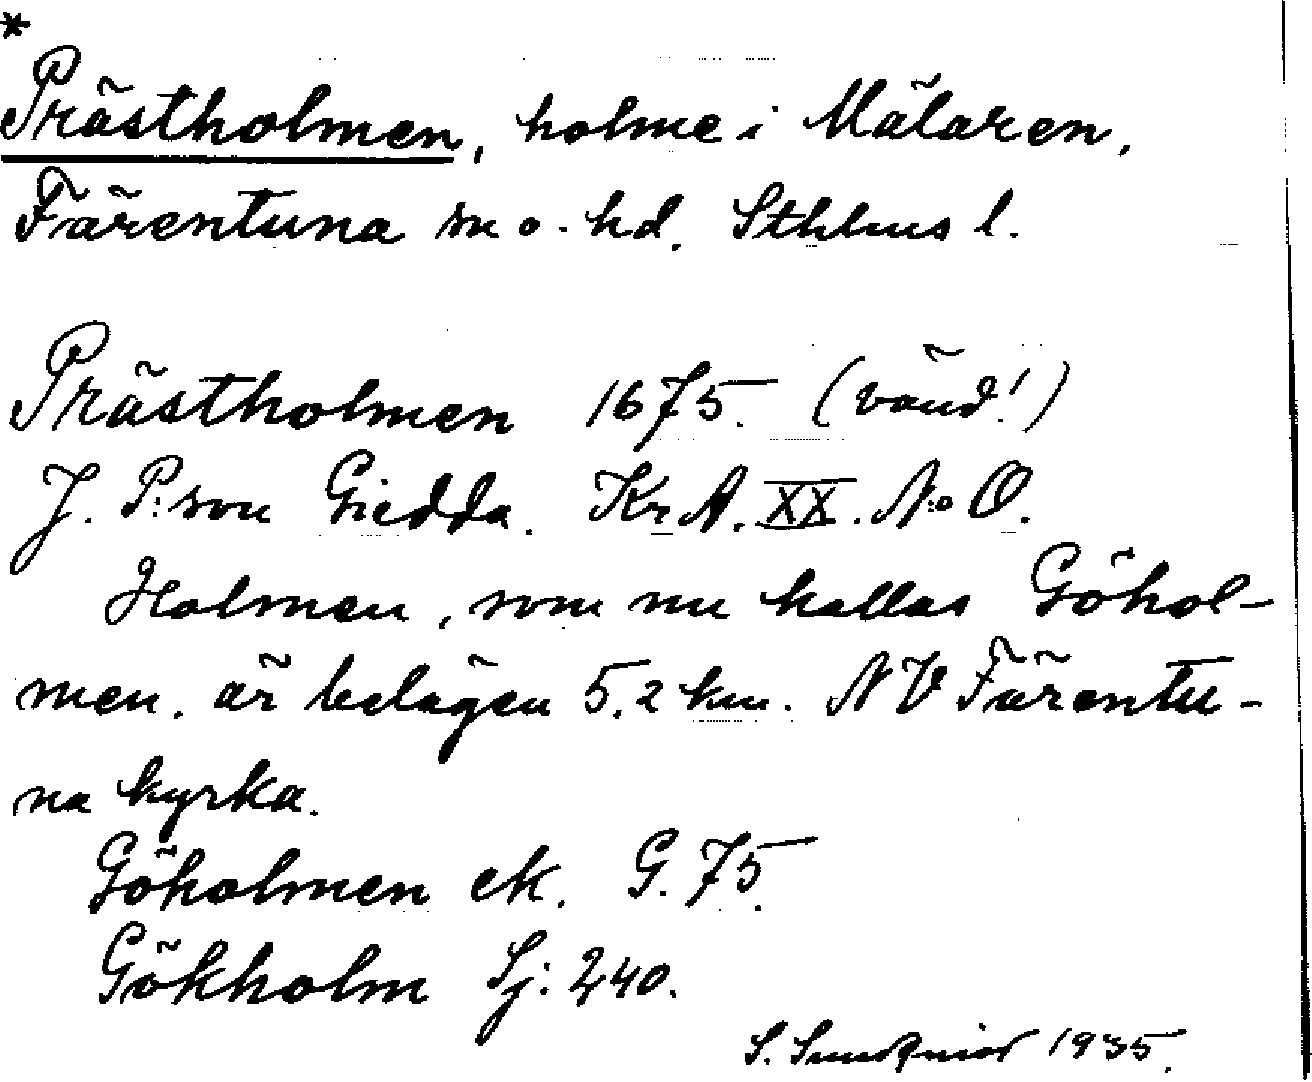 *
Prästholmen, holme i Mälaren,
Färentuna sn o. hd. Sthlms l.
Prästholmen 1675. (vänd!)
J. P:son Giedda. Kr A. XX. No O.
Holmen, som nu kallas Göhol-
men. är belägen 5,2 km. NV Färentu-
na kyrka.
Göholmen ek. G. 75.
Gökholm Sj: 240.
S. Sundqvist 1935.